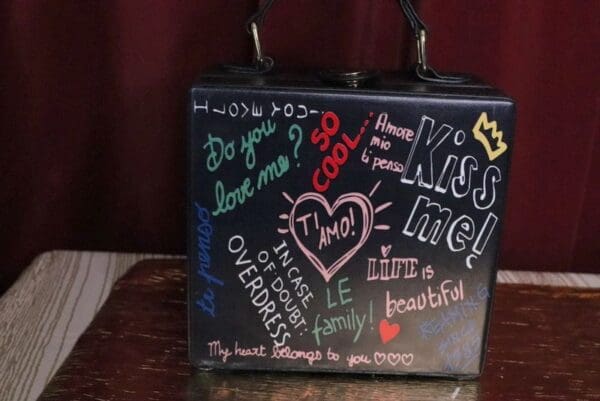 I LOVE YOU!
Do you
love me?
SO
COOL...
Amore
mio
ti penso
Kiss
me!
ti penso
TI
AMO!
IN CASE
OF DOUBT:
OVERDRESS
LIFE is
beautiful
LE
family!
ROAMING
SINCE
My heart belongs to you